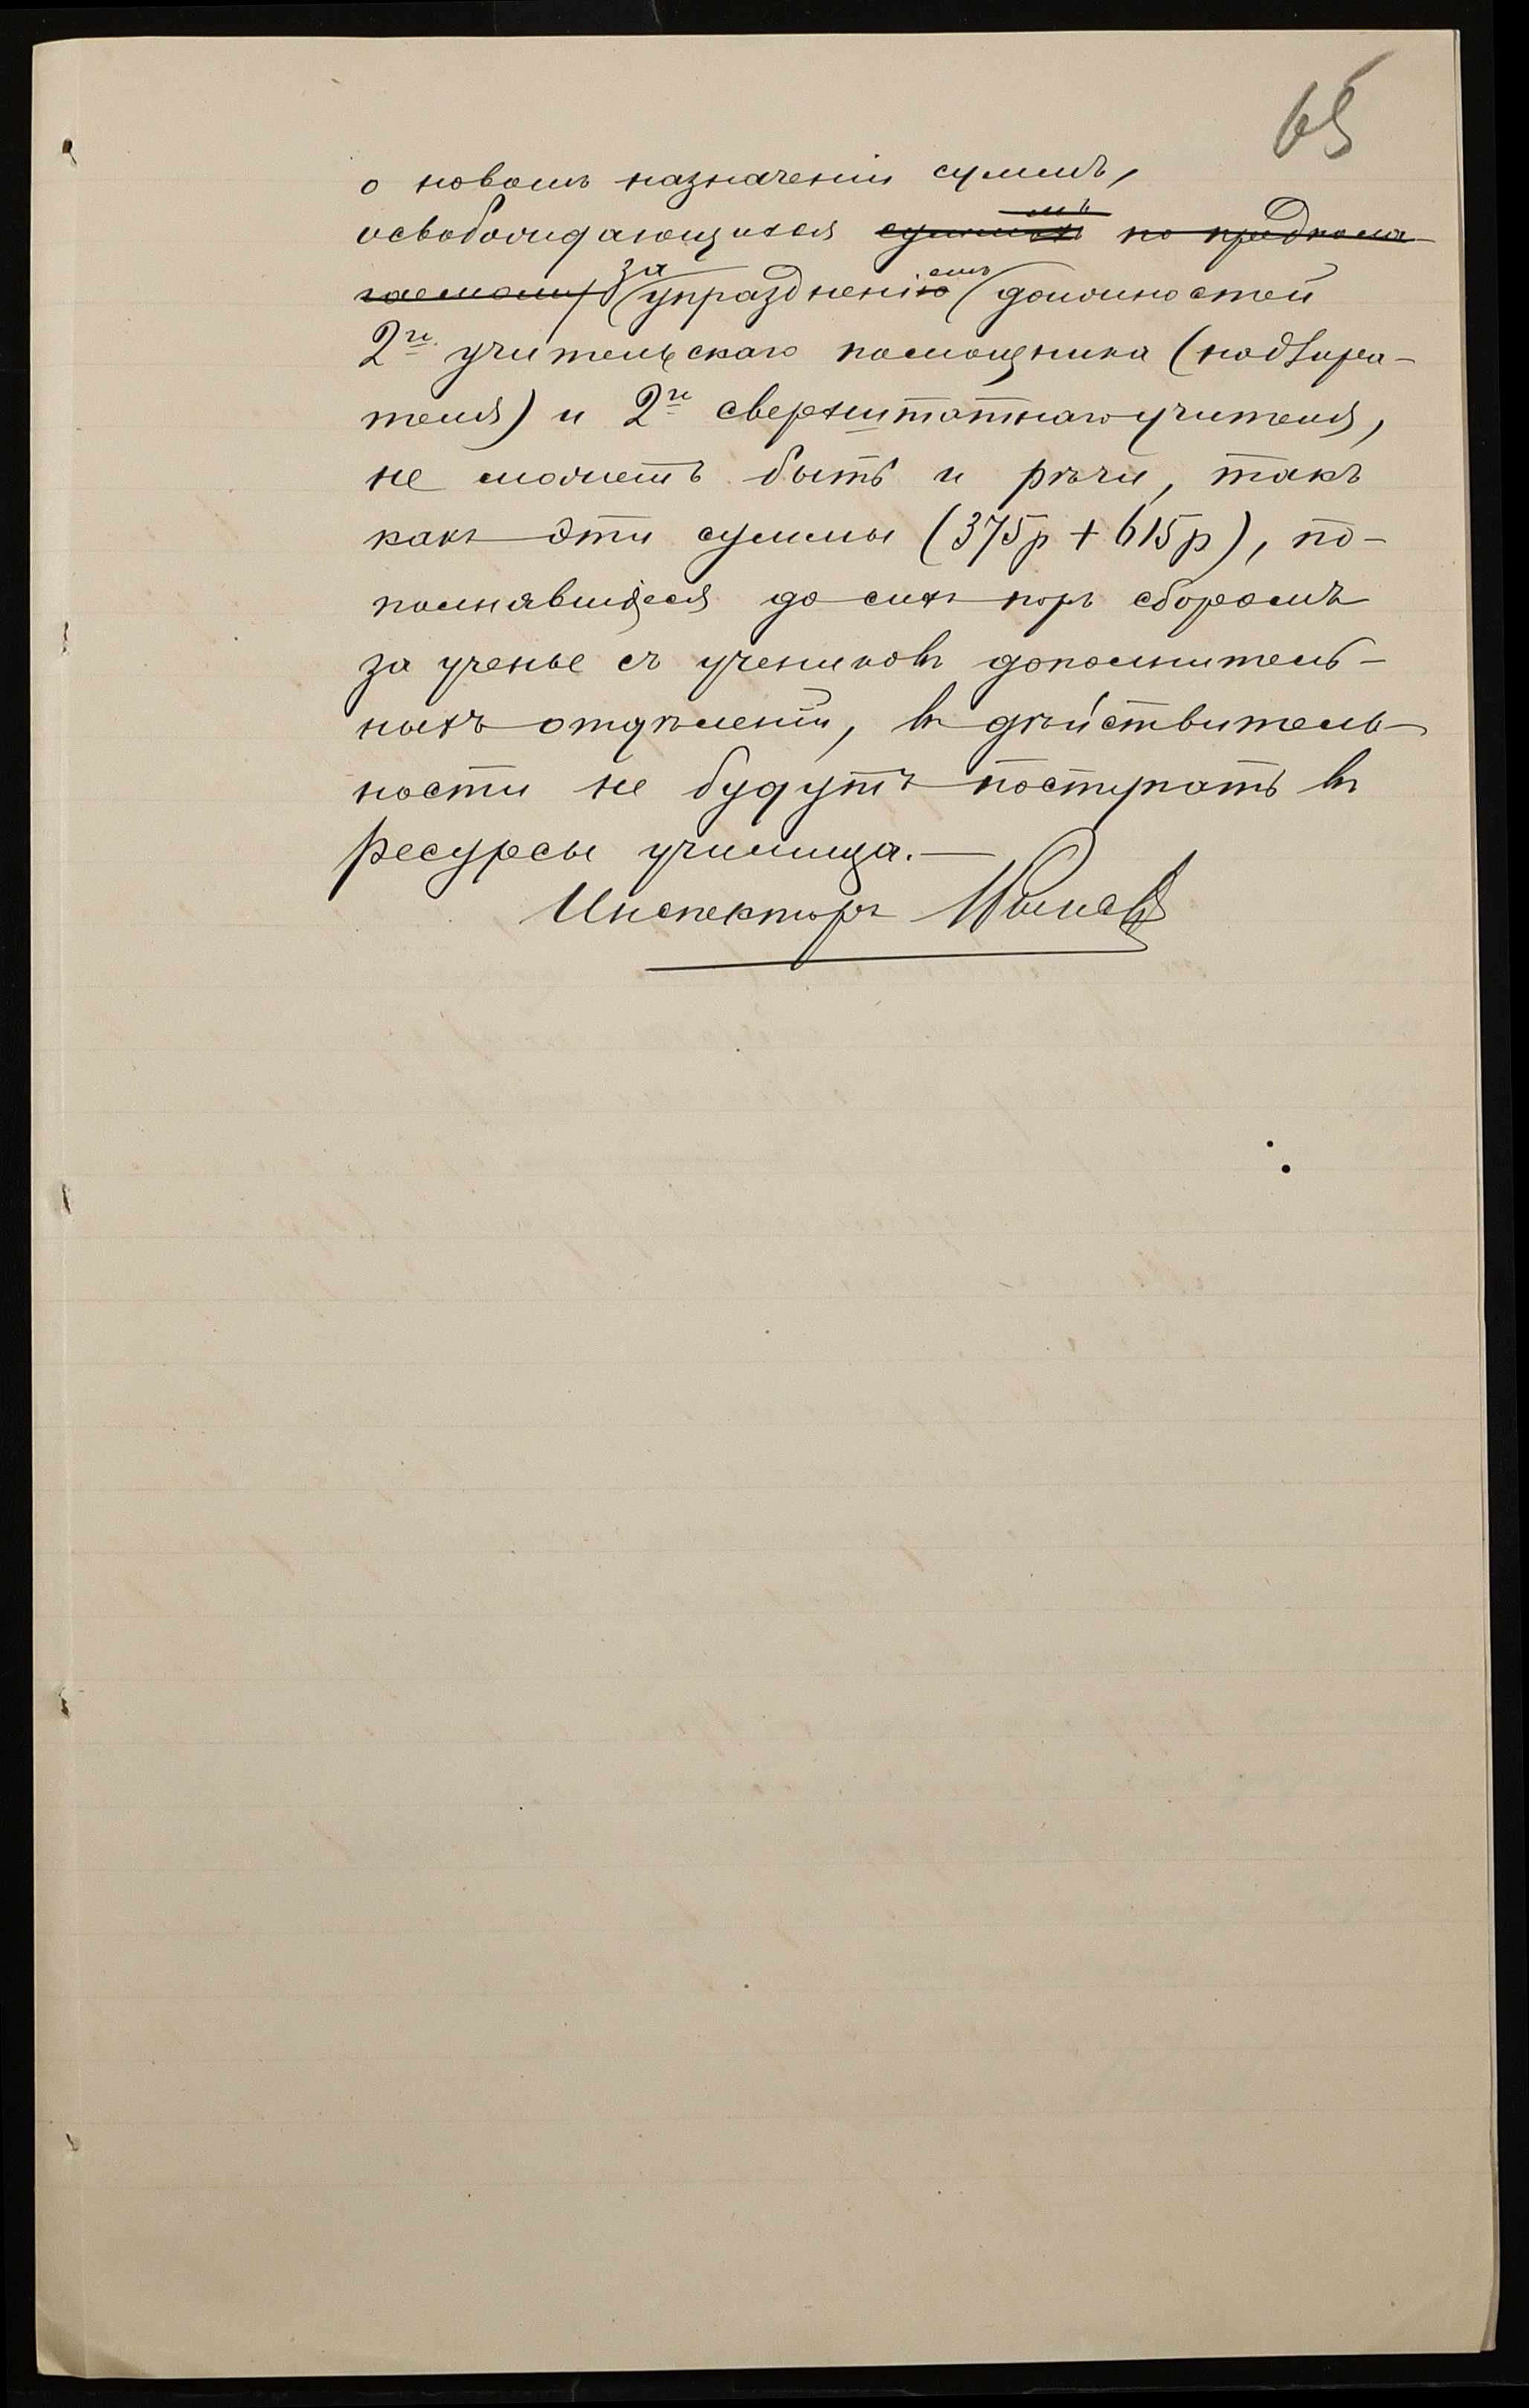 65
о новомъ назначеніи суммъ,
освобождающихся суммахъ по предпола-
гаемому за упраздненіемъ должностей
2го учительскаго помощника (надзира-
теля) и 2го сверхштатнаго учителя,
не можетъ быть и рѣчи, такъ
какъ эти суммы (375р + 615р), по-
полнявшіяся до сихъ поръ сборомъ
за ученье съ учениковъ дополнитель-
ныхъ отдѣленій, въ дѣйствитель-
ности не будутъ поступать въ
ресурсы училища.—
Инспекторъ